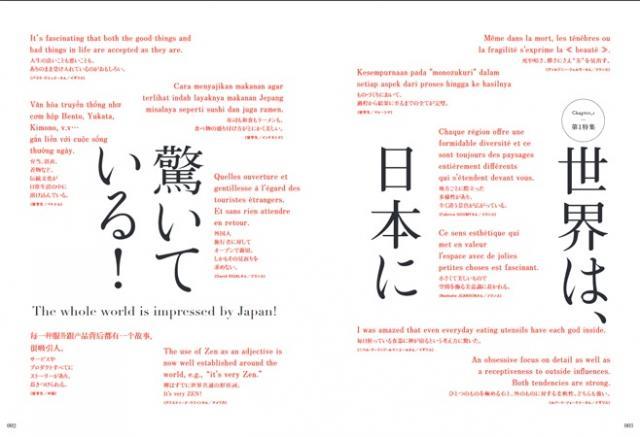 Chapter_1
第1特集
世界は、
日本に
驚いて
いる!
The whole world is impressed by Japan!
Même dans la mort, les ténèbres ou
la fragilité s'exprime la « beauté ».
Kesempurnaan pada "monozukuri" dalam
setiap aspek dari proses hingga ke hasilnya
ものづくりにおいて、
過程から結果に至るまでの全てが完璧。
Chaque région offre une
formidable diversité et ce
sont toujours des paysages
entièrement différents
qui s'étendent devant vous.
地方ごとに際立った
多様性があり、
全く違う景色が広がっている。
Ce sens esthétique qui
met en valeur
l'espace avec de jolies
petites choses est fascinant.
小さくて美しいもので
空間を飾る美意識に惹かれる。
I was amazed that even everyday eating utensils have each god inside.
毎日使っている食器に神が宿るという考え方に驚いた。
An obsessive focus on detail as well as
a receptiveness to outside influences.
Both tendencies are strong.
ひとつのものを極める心と、外のものに対する柔軟性、どちらも強い。
003
It's fascinating that both the good things and
bad things in life are accepted as they are.
人生の良いことも悪いことも、
ありのまま受け入れているのがおもしろい。
Cara menyajikan makanan agar
terlihat indah layaknya makanan Jepang
misalnya seperti sushi dan juga ramen.
お寿司も和食もラーメンも、
食べ物の盛り付け方がとにかく美しい。
Văn hóa truyền thống như
cơm hộp Bento, Yukata,
Kimono, v.v…
gắn liền với cuộc sống
thường ngày.
弁当、浴衣、
着物など、
伝統文化が
日常生活の中に
溶け込んでいる。
Quelles ouverture et
gentillesse à l'égard des
touristes étrangers.
Et sans rien attendre
en retour.
外国人
旅行者に対して
オープンで親切。
しかもその見返りを
求めない。
每一种服务跟产品背后都有一个故事,
很吸引人。
サービスや
プロダクトすべてに
ストーリーがあり、
惹きつけられる。
The use of Zen as an adjective is
now well established around
the world, e.g., "it's very Zen."
禅はすでに世界共通の形容詞。
It's very ZEN!
002